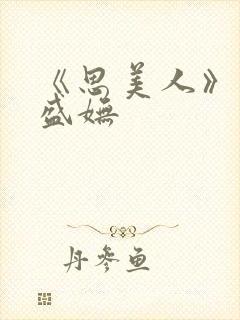 《思美人》
盛嫵
丹参鱼